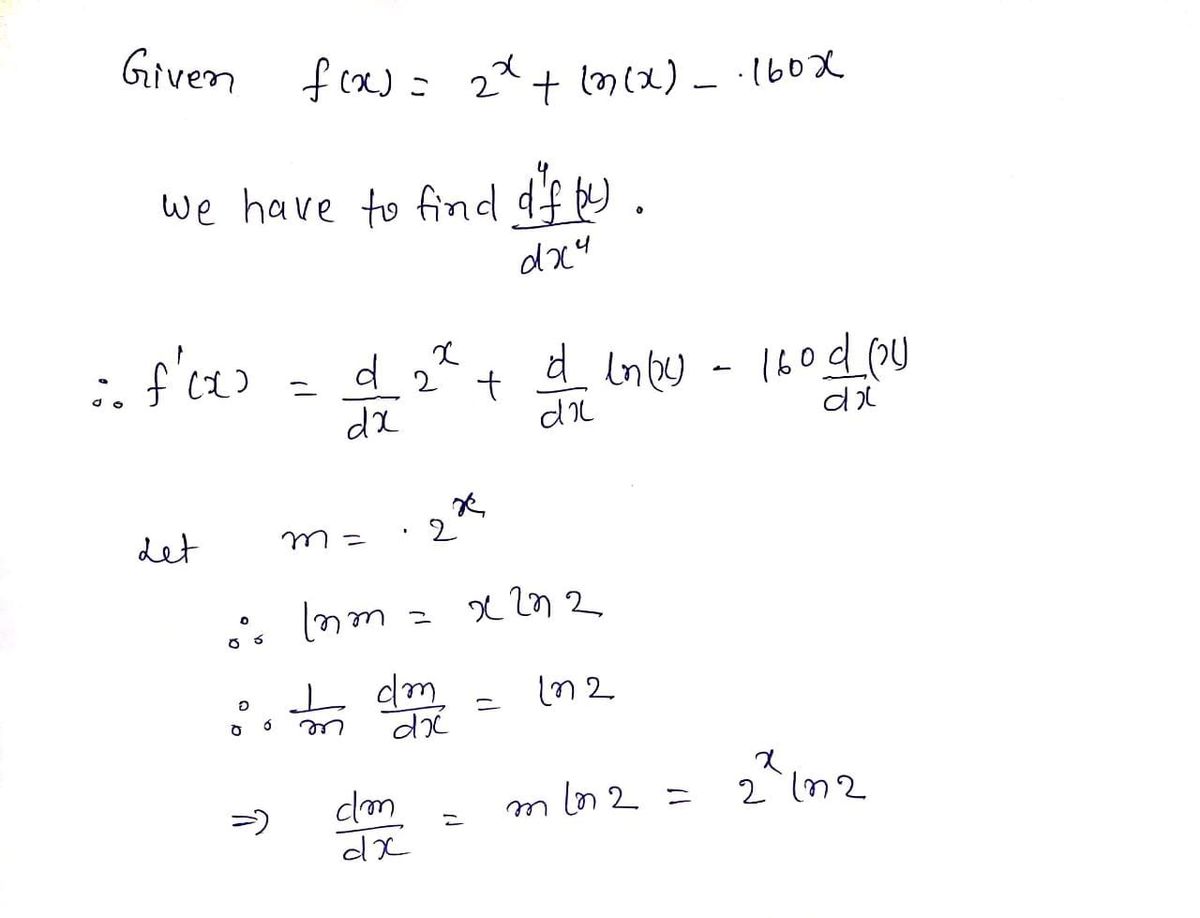 Given f(x) = 2^x + ln(x) - 160x
we have to find d^4f(x)/dx^4.
∴ f'(x) = d/dx 2^x + d/dx ln(x) - 160 d/dx (x)
Let m = 2^x
∴ ln m = x ln 2
∴ 1/m dm/dx = ln 2
⇒ dm/dx = m ln 2 = 2^x ln 2